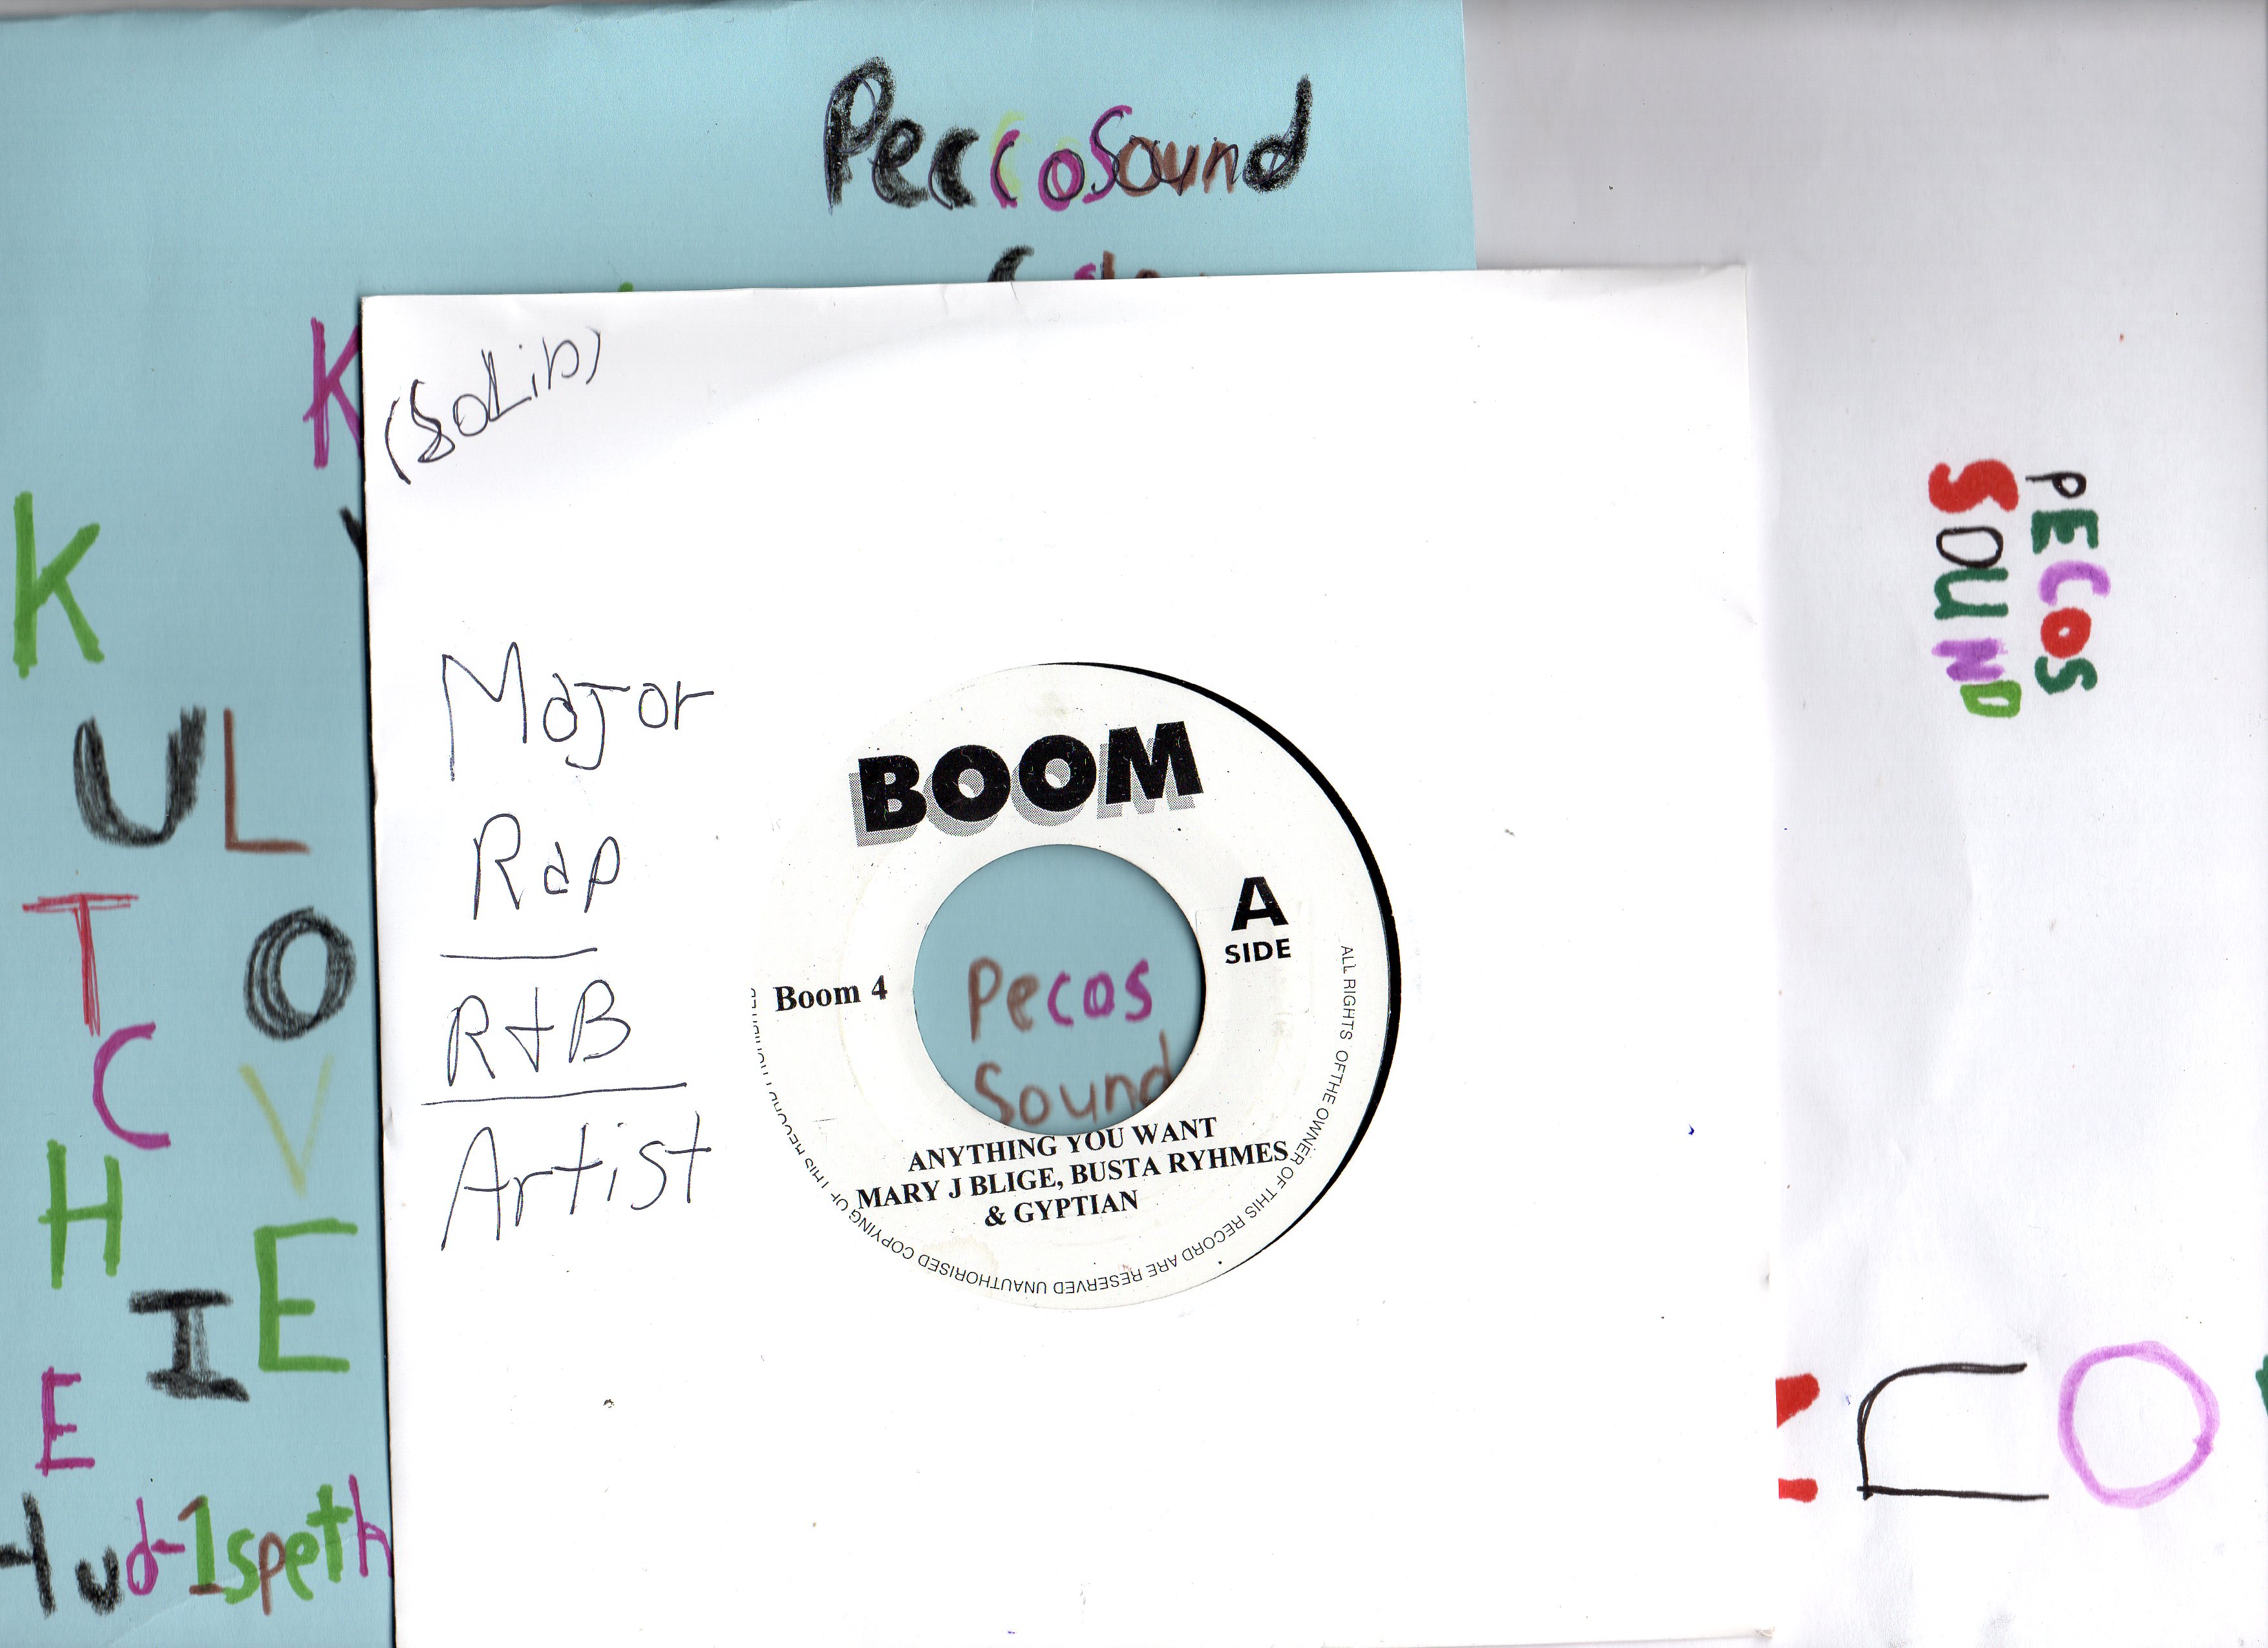 PeccoSound
K
K
U L
T O
C V
H E
I
E
Hud-1speth
(SoLid)
Major
Rap
R+B
Artist
BOOM
A
SIDE
Boom 4
Pecos
Sound
ANYTHING YOU WANT
MARY J BLIGE, BUSTA RYHMES
& GYPTIAN
ALL RIGHTS OFTHE OWNER OF THIS RECORD ARE RESERVED UNAUTHORISED COPYING OF THIS RECORD
PECOS
SOUND
O